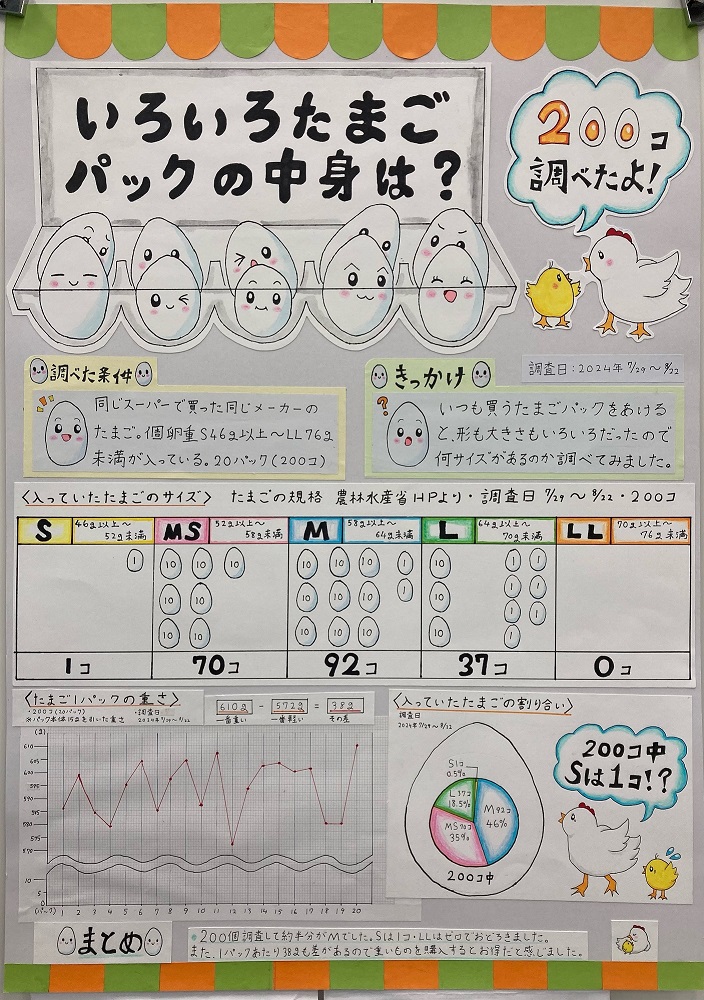 いろいろたまご
パックの中身は？
200コ
調べたよ！
調べた条件
同じスーパーで買った同じメーカーの
たまご。個卵重S46g以上〜LL76g
未満が入っている。20パック(200コ)
きっかけ
調査日：2024年7/29〜8/22
?
いつも買うたまごパックをあける
と、形も大きさもいろいろだったので
何サイズがあるのか調べてみました。
〈入っていたたまごのサイズ〉 たまごの規格 農林水産省HPより・調査日7/29〜8/22・200コ
S 46g以上〜52g未満
MS 52g以上〜58g未満
M 58g以上〜64g未満
L 64g以上〜70g未満
LL 70g以上〜76g未満
1
10 10 10
10 10
10 10
10 10 10 1
10 10 10 1
10 10 10
10 1 1
10 1 1
10 1 1
1
1コ 70コ 92コ 37コ 0コ
〈たまご1パックの重さ〉
・200コ(20パック) ・調査日
※パック本体15gを引いた重さ 2024年7/29〜8/22
610g - 572g = 38g
一番重い 一番軽い その差
(g)
610
605
600
595
590
585
580
575
570
10
5
0
(パック) 1 2 3 4 5 6 7 8 9 10 11 12 13 14 15 16 17 18 19 20
〈入っていたたまごの割り合い〉
調査日
2024年7/29〜8/22
S1コ
0.5%
L37コ
18.5%
M92コ
46%
MS70コ
35%
200コ中
200コ中
Sは1コ!?
まとめ
200個調査して約半分がMでした。Sは1コ・LLはゼロでおどろきました。
また、1パックあたり38gも差があるので重いものを購入するとお得だと感じました。